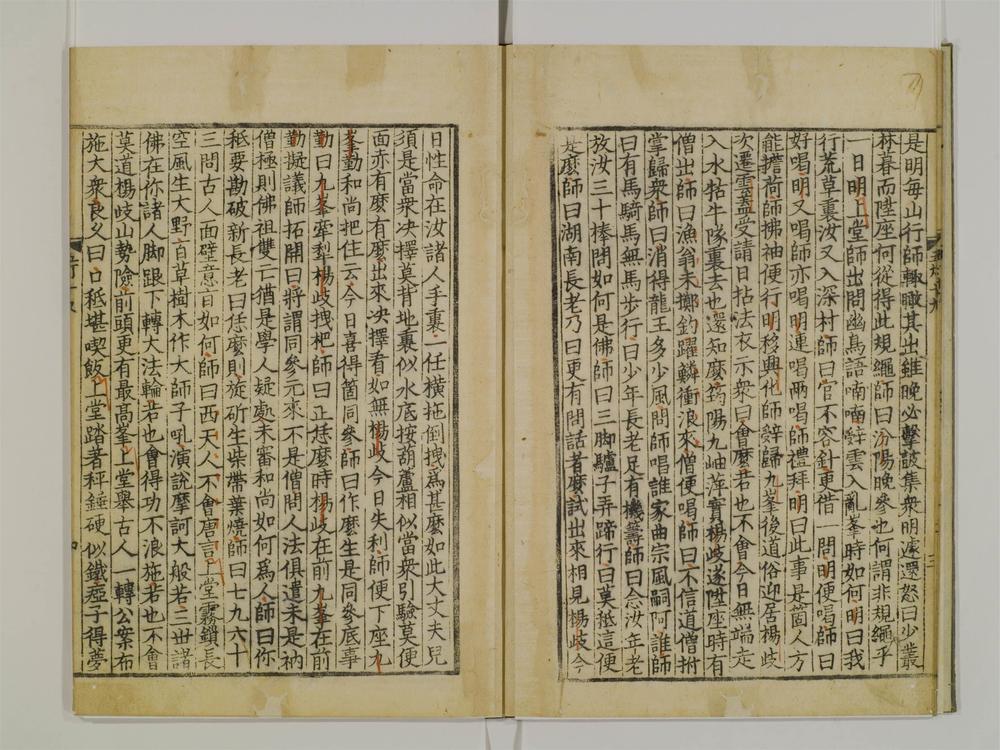 是明每山行師輙瞰其出雖晚必擊鼓集衆明遽還怒曰少叢
林暮而陞座何從得此規繩師曰汾陽晚參也何謂非規繩乎
一日明上堂師出問幽鳥語喃喃辭雲入亂峯時如何明曰我
行荒草裏汝又入深村師曰官不容針更借一問明便喝師曰
好喝明又喝師亦喝明連喝兩喝師禮拜明曰此事是箇人方
能擔荷師拂袖便行明移興化師辭歸九峯後道俗迎居楊歧
次遷雲蓋受請日拈法衣示衆曰會麼若也不會今日無端走
入水牯牛隊裏去也還知麼筠陽九岫萍實楊歧遂陞座時有
僧出師曰漁翁未擲釣躍鱗衝浪來僧便喝師曰不信道僧拊
掌歸衆師曰消得龍王多少風問師唱誰家曲宗風嗣阿誰師
曰有馬騎馬無馬步行曰少年長老足有機籌師曰念汝年老
放汝三十棒問如何是佛師曰三脚驢子弄蹄行曰莫秪這便
是麼師曰湖南長老乃曰更有問話者麼試出來相見楊歧今
日性命在汝諸人手裏一任横拖倒拽爲甚麼如此大丈夫兒
須是當衆决擇莫背地裏似水底按葫蘆相似當衆引驗莫便
面赤有麼有麼出來决擇看如無楊歧今日失利師便下座九
峯勤和尚把住云今日喜得箇同參師曰作麼生是同參底事
勤曰九峯牽犁楊歧拽杷師曰正恁麼時楊歧在前九峯在前
勤擬議師拓開曰將謂同參元來不是僧問人法俱遣未是衲
僧極則佛祖雙亡猶是學人疑處未審和尚如何爲人師曰你
秪要勘破新長老曰恁麼則旋斫生柴帶葉燒師曰七九六十
三問古人面壁意旨如何師曰西天人不會唐言上堂霧鎖長
空風生大野百草樹木作大師子吼演說摩訶大般若三世諸
佛在你諸人脚跟下轉大法輪若也會得功不浪施若也不會
莫道楊歧山勢險前頭更有最高峯上堂舉古人一轉公案布
施大衆良久曰口秪堪喫飯上堂踏著秤錘硬似鐵瘂子得夢